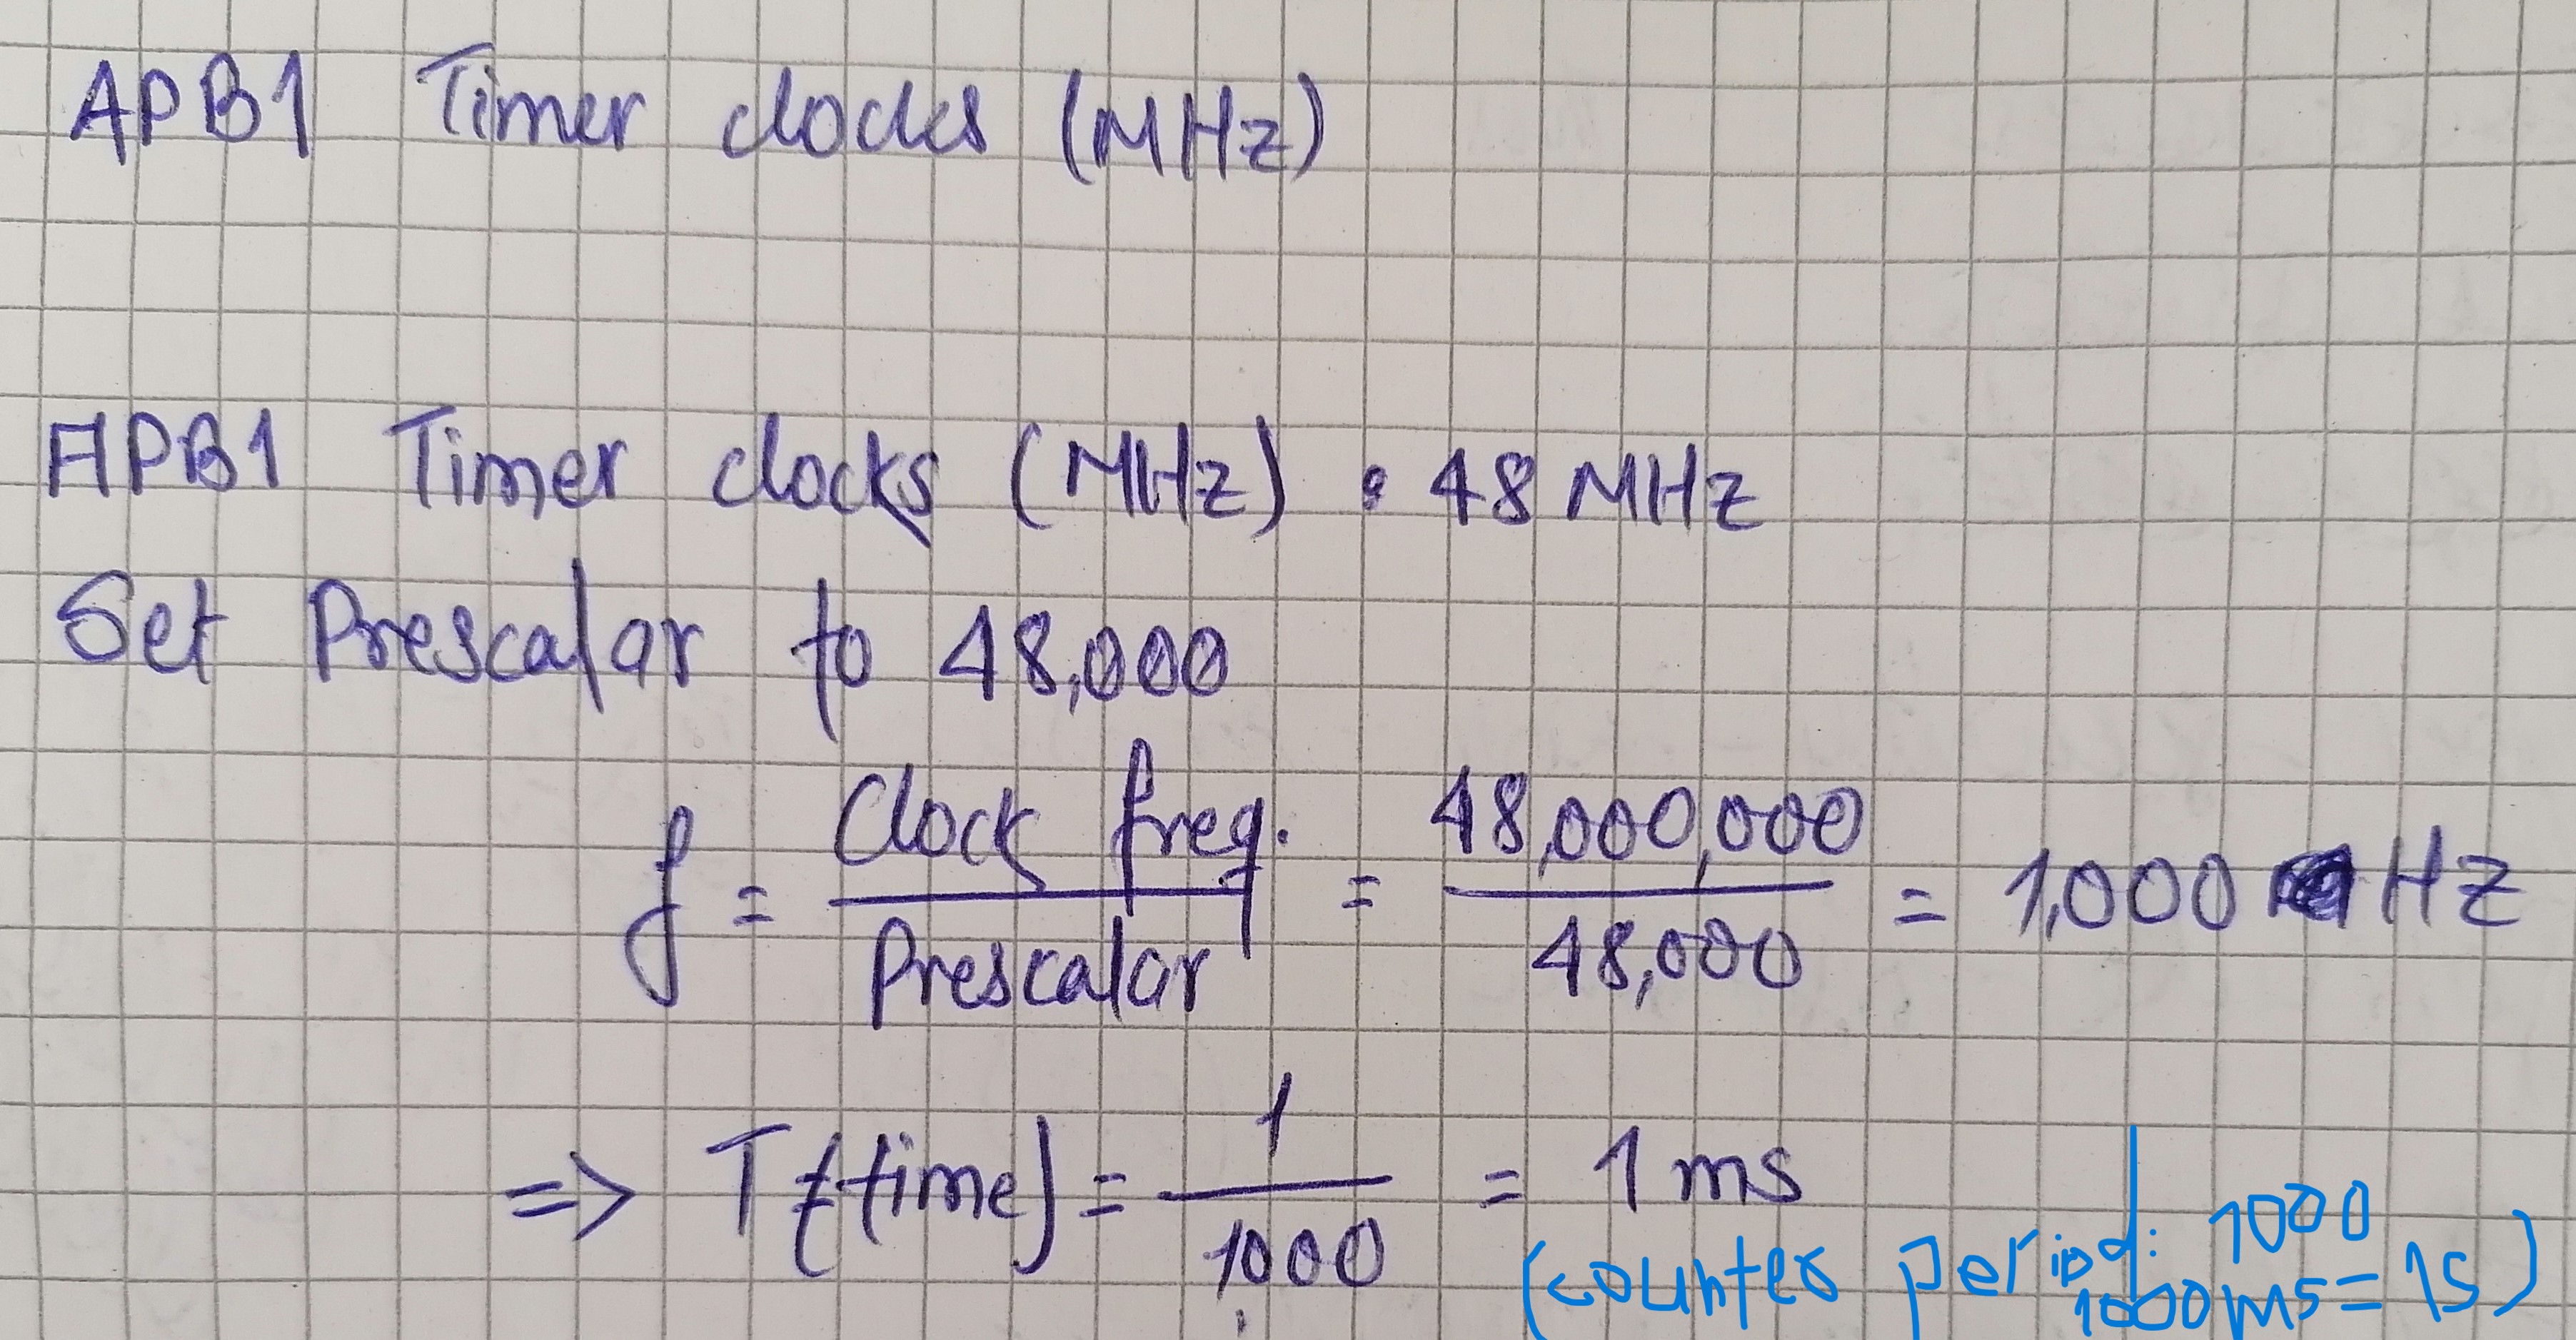 APB1 Timer clocks (MHz)
APB1 Timer clocks (MHz) : 48 MHz
Set Prescalar to 48,000
f = Clock freq. / Prescalar = 48,000,000 / 48,000 = 1,000 Hz
=> T (time) = 1 / 1000 = 1 ms
(counter period: 1000
1000ms = 1s)